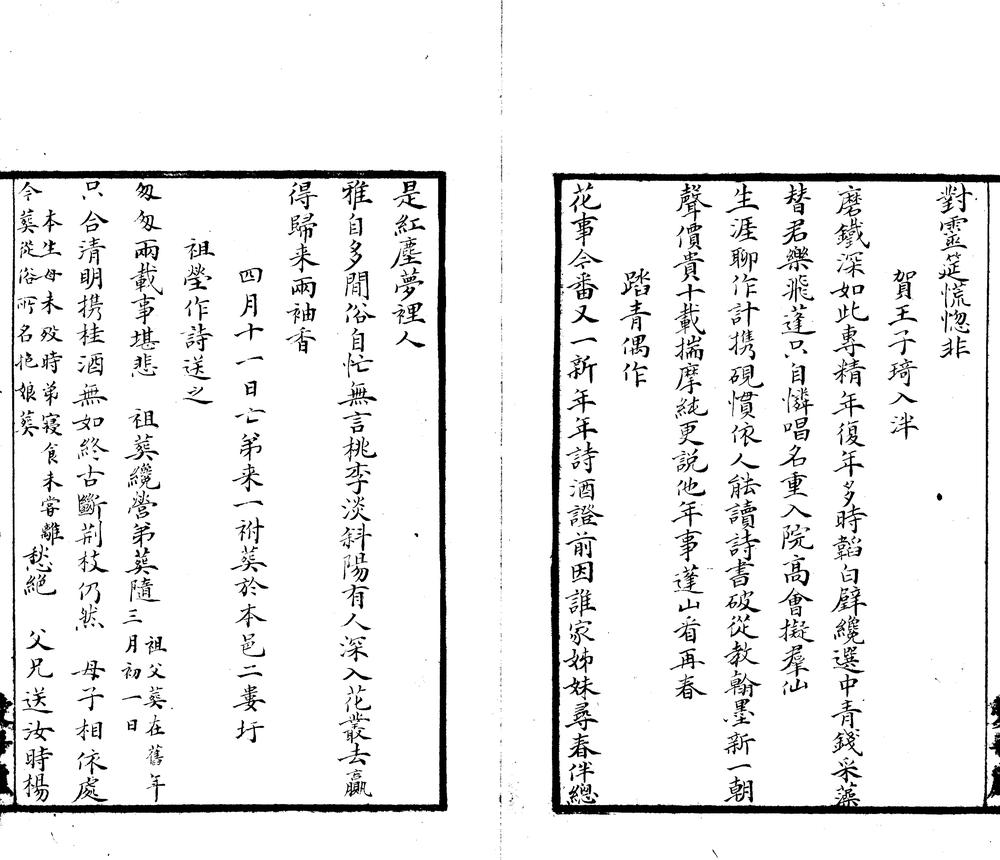 對靈筵慌惚非
賀王子琦入泮
磨鐵深如此專精年復年多時韜白璧纔選中青錢采藻
替君樂飛蓬只自憐唱名重入院高會擬羣仙
生涯聊作計携硯慣依人能讀詩書破從教翰墨新一朝
聲價貴十載揣摩純更說他年事蓬山看再春
踏青偶作
花事今番又一新年年詩酒證前因誰家姊妹尋春伴總
是紅塵夢裡人
雅自多閒俗自忙無言桃李淡斜陽有人深入花叢去贏
得歸来兩袖香
四月十一日亡弟来一祔葬於本邑二婁圩
祖塋作詩送之
匆匆兩載事堪悲 祖葬纔營弟葬隨
祖父葬在舊年
三月初一日
只合清明携桂酒無如終古斷荆枝仍然 母子相依處
本生母未歿時弟寢食未嘗離
今葬從俗所名抱娘葬
愁絕 父兄送汝時楊